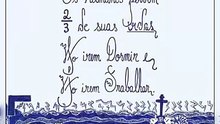 Os Humanos
2/3 de suas vidas
No irem Dormir e
No irem Trabalhar,